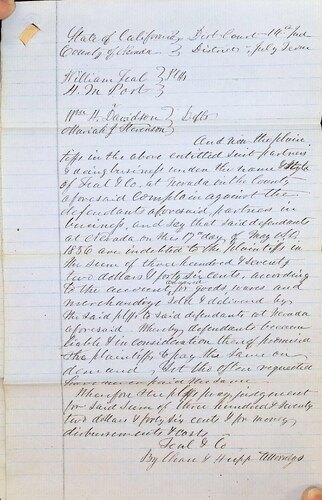 State of California } Dist Court 14th Jud
County of Nevada } District July Term
William Teal } Plffs
H. M. Port
Wm H. Davidson } Dfts
Mariah J. Stevenson
And now the plain
tiffs in the above entitled suit partners
& doing business under the name & style
of Teal & Co. at Nevada in the County
aforesaid Complain against the
defendants aforesaid partners in
business, and say that said defendants
at Nevada on this 17th day of May A.D.
1856 are indebted to the Plaintiffs in
the sum of three hundred & seventy
two dollars & forty six cents, according
to the account annexed for goods wares and
merchandise sold & delivered by
the said plffs to said defendants at Nevada
aforesaid. Whereby defendants became
liable & in consideration thereof promised
the plaintiffs to pay the same on
demand, yet tho often requested
have never paid the same
Wherefore the plffs pray judgment
for said sum of three hundred & seventy
two dollars & forty six cents & for money,
disbursements & costs.
Teal & Co
By & Hupp Attorneys